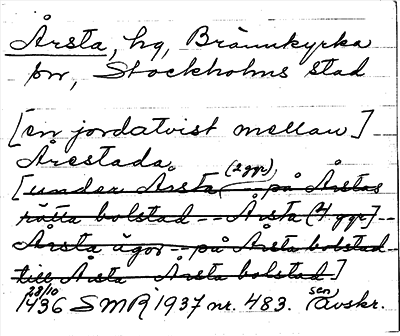 Årsta, hg, Brännkyrka
sn, Stockholms stad
[en jordatvist mellan]
Årestada (2 ggr)
[under Årsta -- på Årstas
rätta bolstad -- Årsta (4 ggr) --
Årsta ägor -- på Årsta bolstad
till Årsta -- Årsta bolstad]
28/10
1436 SMR 1937 nr. 483. sen Avskr.